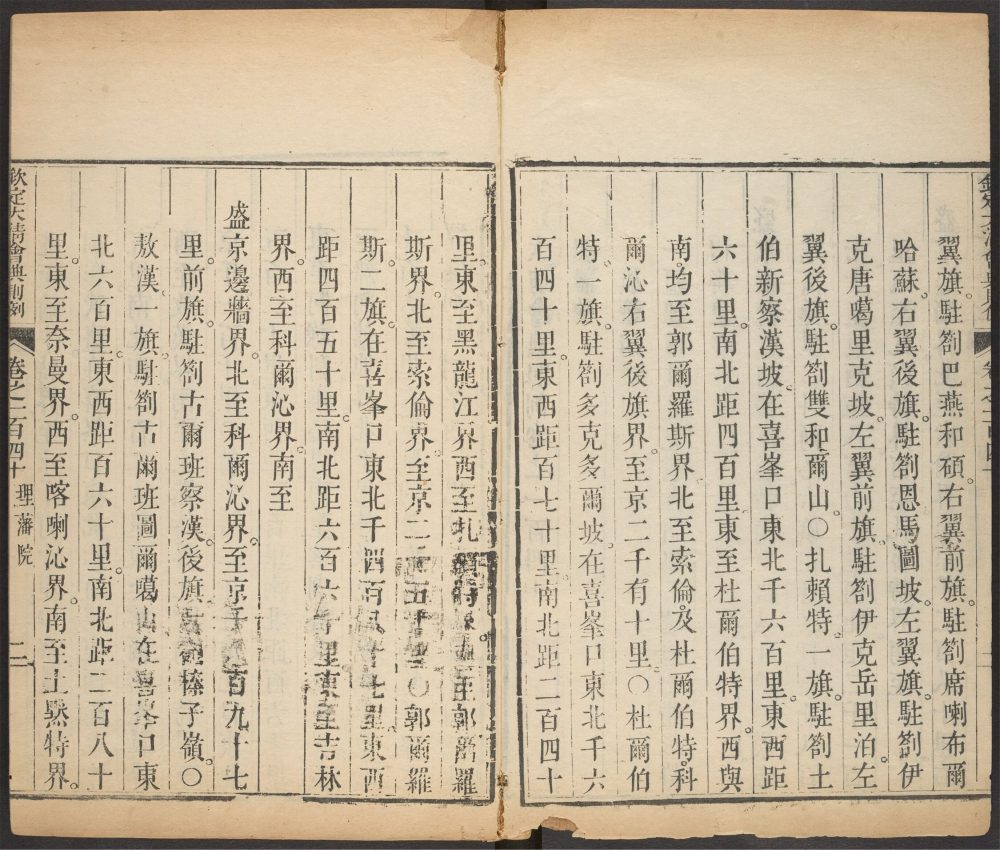 翼旗。駐劄巴燕和碩。右翼前旗。駐劄席喇布爾
哈蘇。右翼後旗。駐劄恩馬圖坡。左翼旗。駐劄伊
克唐噶里克坡。左翼前旗。駐劄伊克岳里泊。左
翼後旗。駐劄雙和爾山。○扎賴特一旗。駐劄土
伯新察漢坡。在喜峯口東北千六百里。東西距
六十里。南北距四百里。東至杜爾伯特界。西與
南。均至郭爾羅斯界。北至索倫。及杜爾伯特。科
爾沁右翼後旗界。至京二千有十里。○杜爾伯
特一旗。駐劄多克多爾坡。在喜峯口東北千六
百四十里。東西距百七十里。南北距二百四十
里。東至黑龍江界。西至扎 郭爾羅
斯界。北至索倫界。至京二 ○郭爾羅
斯二旗。在喜峯口東北千四百 七里。東西
距四百五十里。南北距六百六十里。東至吉林
界。西至科爾沁界。南至
盛京邊牆界。北至科爾沁界。至京千 百九十七
里。前旗。駐劄古爾班察漢。後旗。 棒子嶺。○
敖漢一旗。駐劄古爾班圖爾噶山。在喜峯口東
北六百里。東西距百六十里。南北距二百八十
里。東至奈曼界。西至喀喇沁界。南至土默特界。
欽定大清會典則例 卷之一百四十 理藩院 二